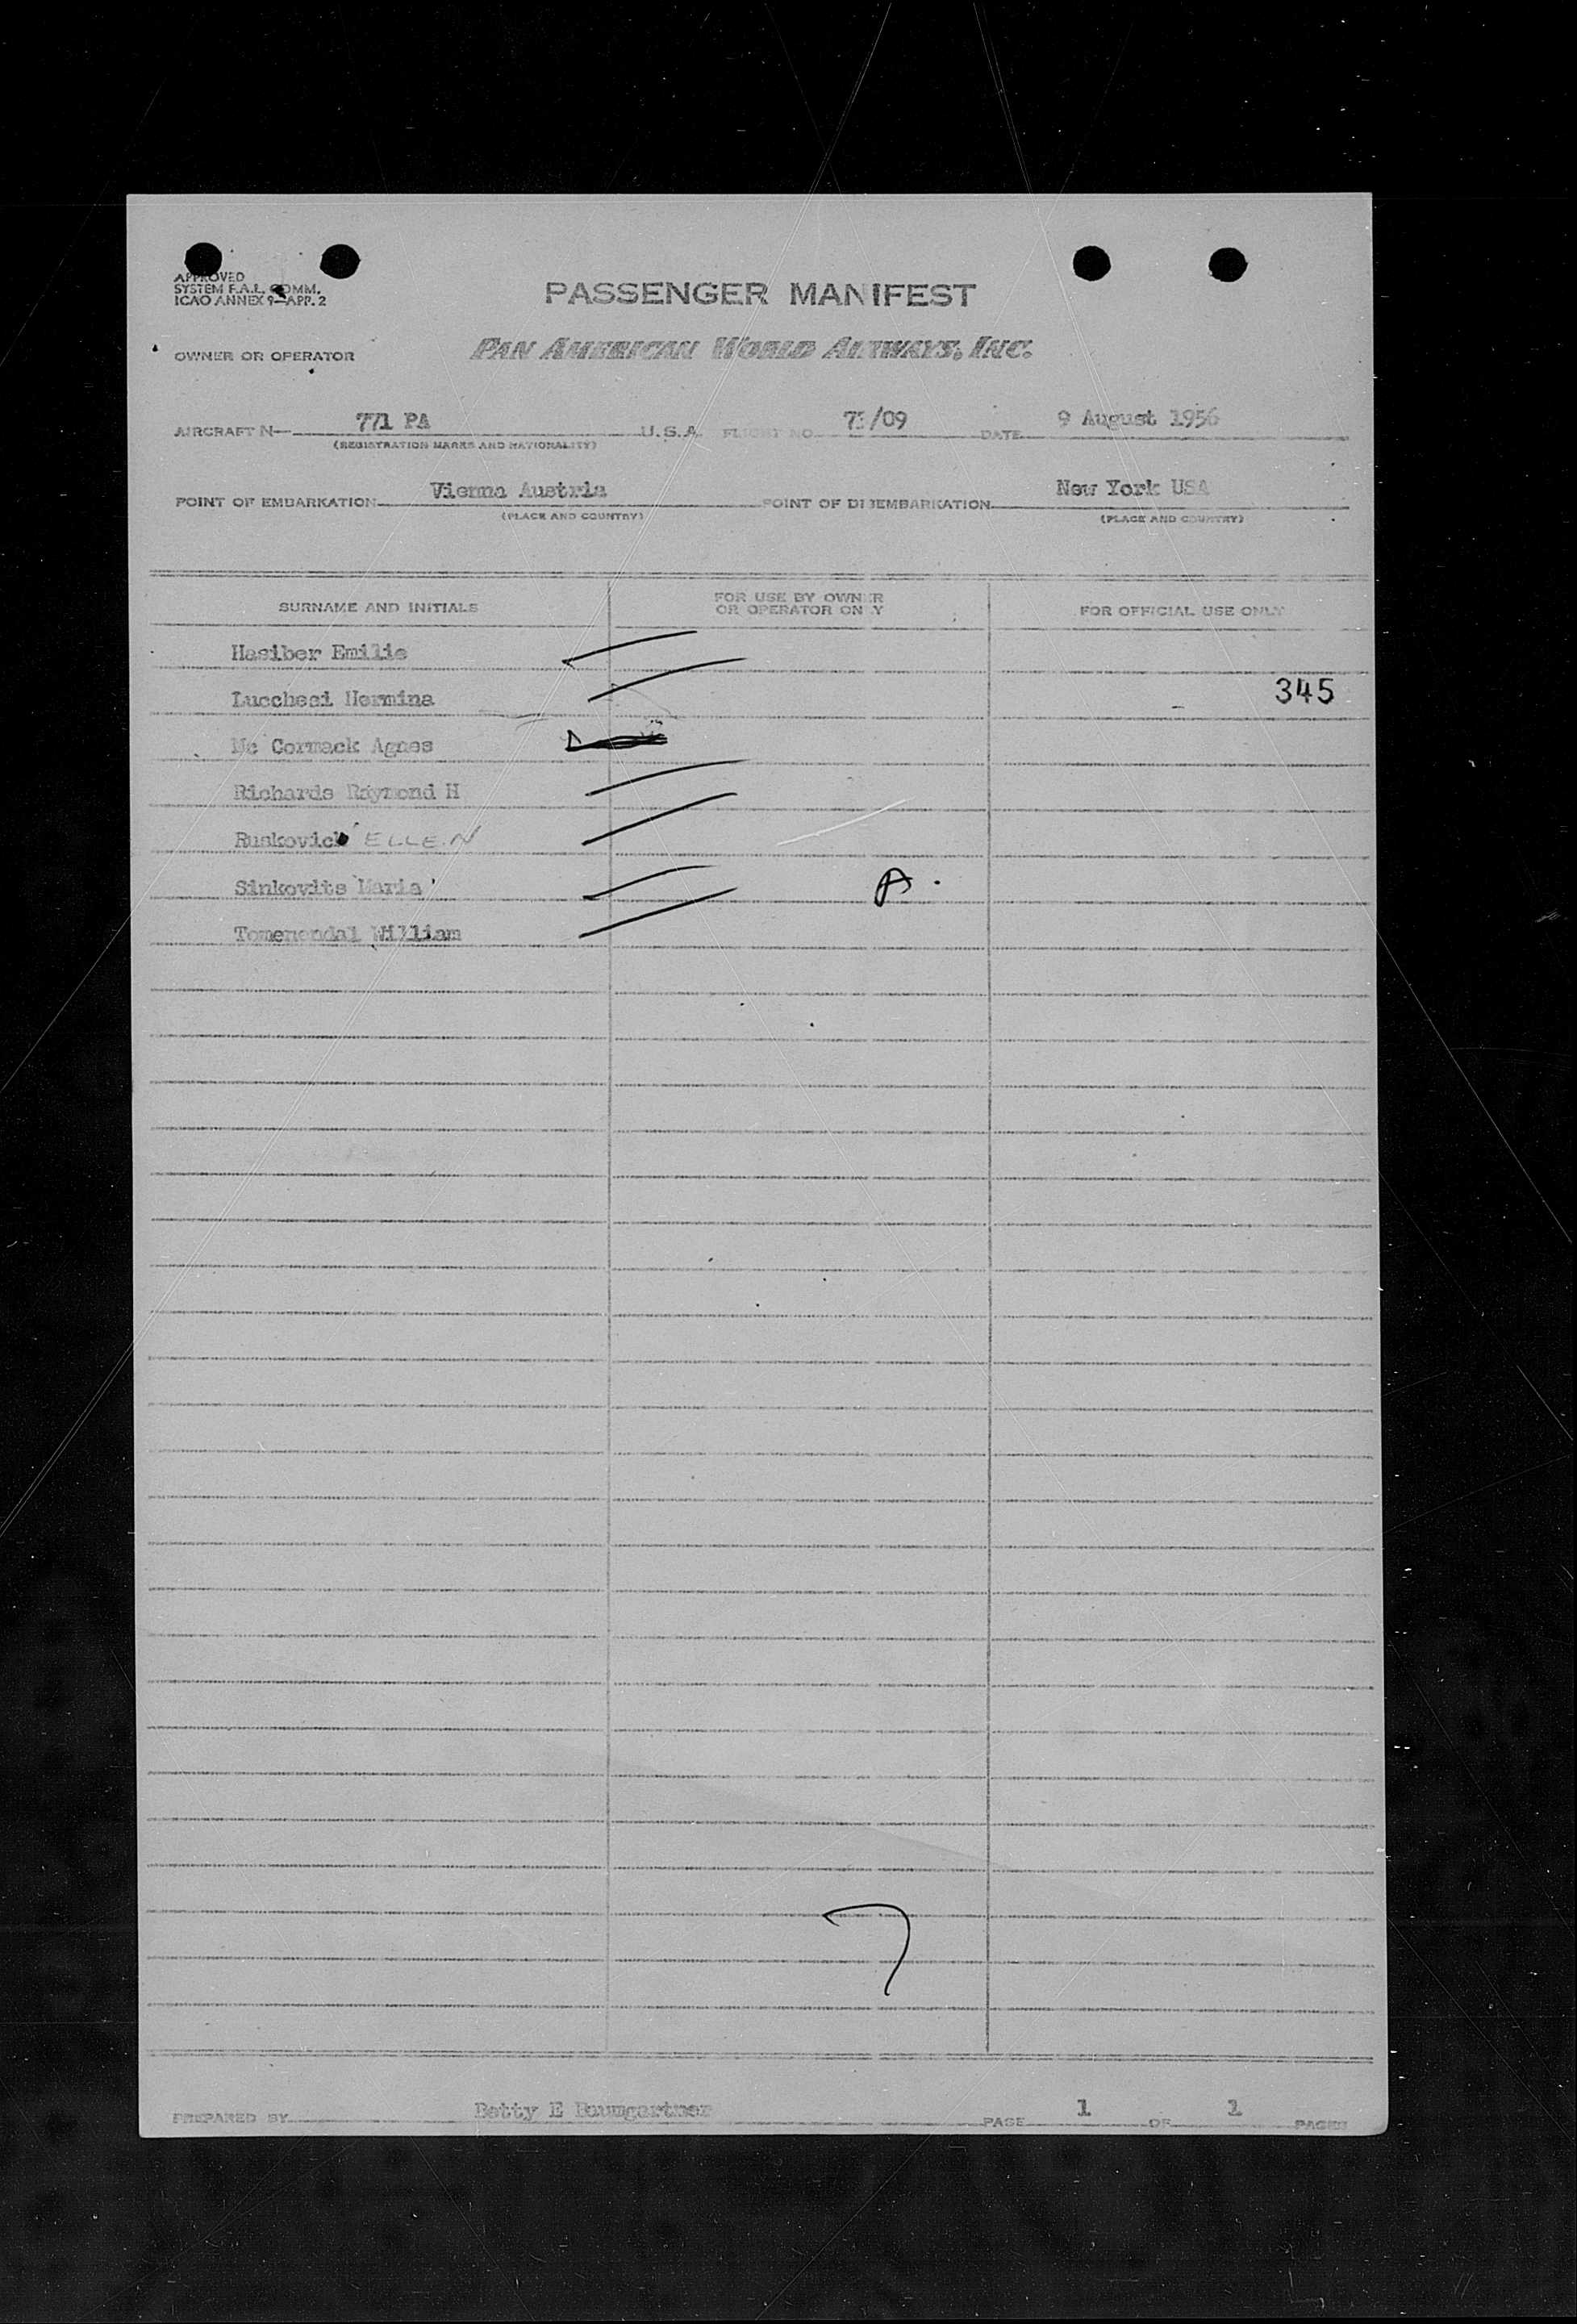 APPROVED
SYSTEM F.A.L. COMM.
ICAO ANNEX 9—APP. 2
PASSENGER MANIFEST
OWNER OR OPERATOR PAN AMERICAN WORLD AIRWAYS, INC.
AIRCRAFT N— 771 PA U.S.A. FLIGHT NO. /09 DATE 9 August 1956
(REGISTRATION MARKS AND NATIONALITY)
POINT OF EMBARKATION Vienna Austria POINT OF DISEMBARKATION New York USA
(PLACE AND COUNTRY) (PLACE AND COUNTRY)
SURNAME AND INITIALS FOR USE BY OWNER OR OPERATOR ONLY FOR OFFICIAL USE ONLY
Hasiber Emilie
Lucchesi Hermina 345
Mc Cormack Agnes
Richards Raymond H
Ruskovich ELLEN
Sinkovits Maria
Tomenendal William
7
PREPARED BY Betty E Baumgartner PAGE 1 OF 1 PAGES